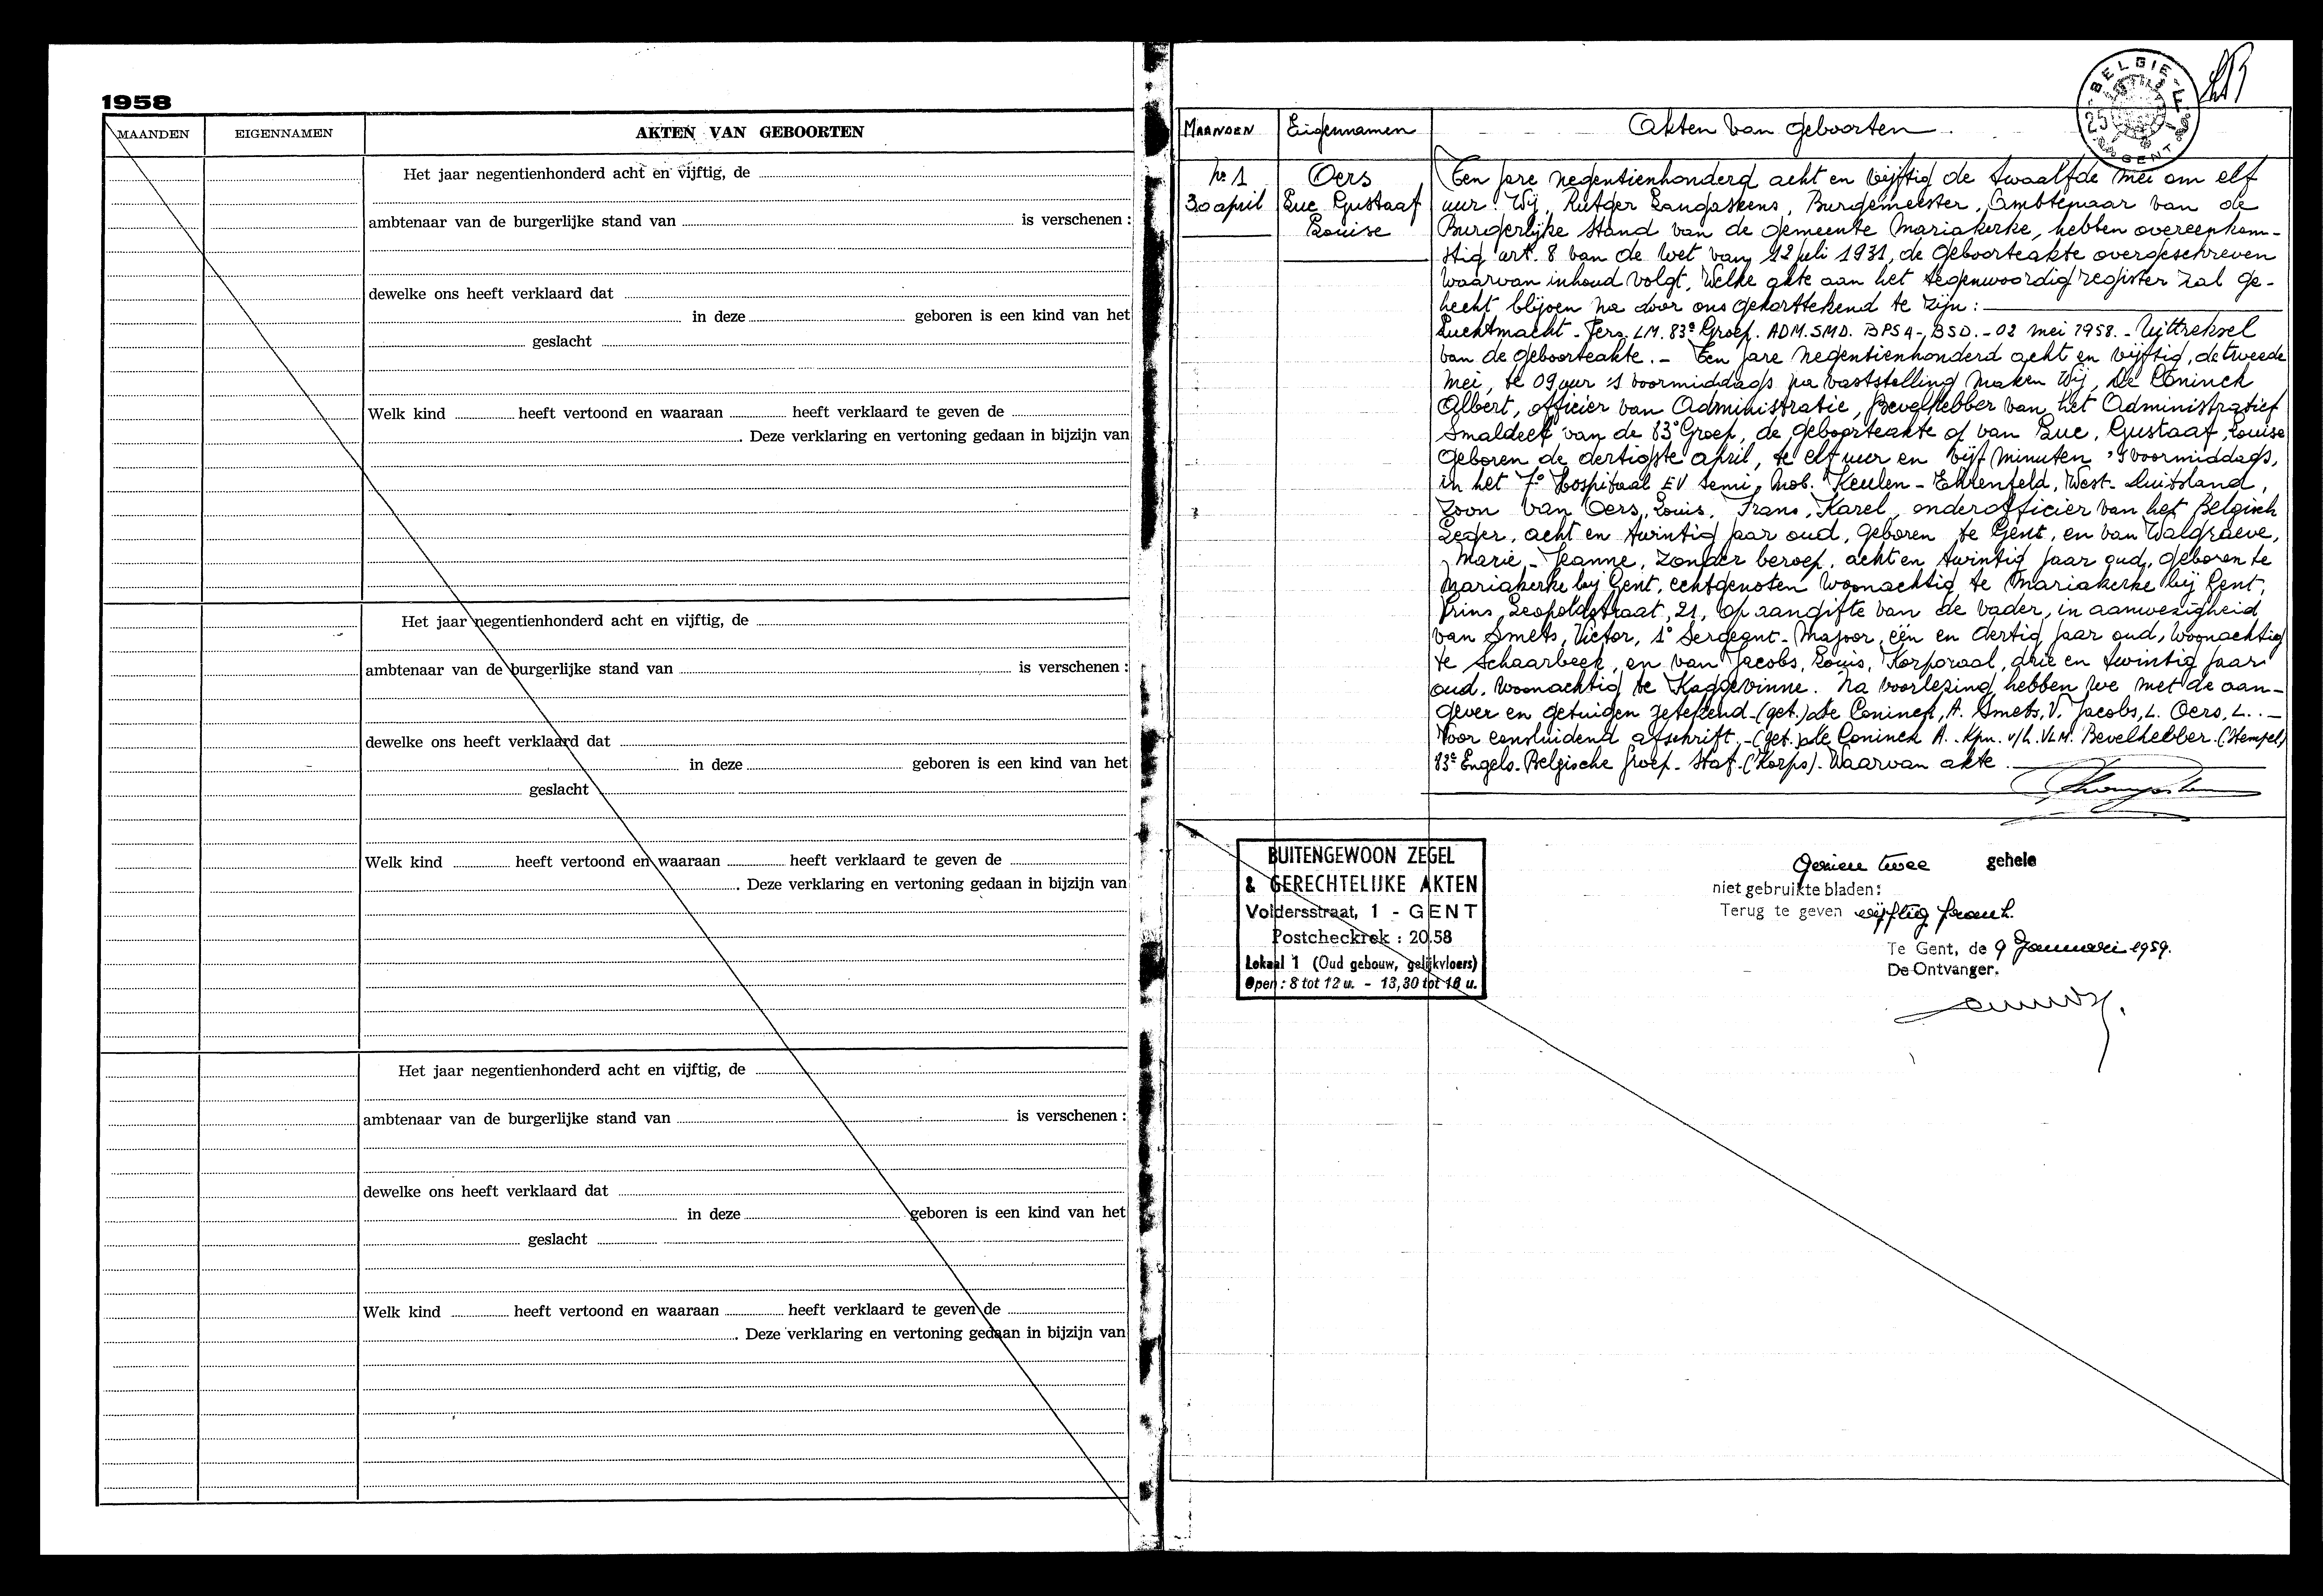 1958
MAANDEN EIGENNAMEN AKTEN VAN GEBOORTEN
Het jaar negentienhonderd acht en vijftig, de
ambtenaar van de burgerlijke stand van is verschenen :
dewelke ons heeft verklaard dat
in deze geboren is een kind van het
geslacht
Welk kind heeft vertoond en waaraan heeft verklaard te geven de
. Deze verklaring en vertoning gedaan in bijzijn van
Het jaar negentienhonderd acht en vijftig, de
ambtenaar van de burgerlijke stand van is verschenen :
dewelke ons heeft verklaard dat
in deze geboren is een kind van het
geslacht
Welk kind heeft vertoond en waaraan heeft verklaard te geven de
. Deze verklaring en vertoning gedaan in bijzijn van
Het jaar negentienhonderd acht en vijftig, de
ambtenaar van de burgerlijke stand van is verschenen :
dewelke ons heeft verklaard dat
in deze geboren is een kind van het
geslacht
Welk kind heeft vertoond en waaraan heeft verklaard te geven de
. Deze verklaring en vertoning gedaan in bijzijn van
BELGIE
25 F
GENT
Maanden Eigennamen Akten van geboorten
nr 1
30 april
Oers
Luc Gustaaf
Louise
Ten jare negentienhonderd acht en vijftig de twaalfde mei om elf
uur. Wij, Rutger Langaskens, Burgemeester, Ambtenaar van de
Burgerlijke Stand van de gemeente Mariakerke, hebben overeenkom-
stig art. 8 van de wet van 12 juli 1931, de geboorteakte overgeschreven
waarvan inhoud volgt, welke akte aan het tegenwoordig register zal ge-
hecht blijven na door ons gekorttekend te zijn :
Luchtmacht - Pers. LM. 83e Groep. ADM. SMD. BPS 4-, BSD. - 02 mei 1958. - Uittreksel
van de geboorteakte. - Ten jare negentienhonderd acht en vijftig, de tweede
mei, te 09 uur 's voormiddags na vaststelling maken Wij, De Coninck
Albert, officier van Administratie, Bevelhebber van het Administratief
Smaldeel van de 83e Groep, de geboorteakte op van Luc, Gustaaf, Louise
geboren de dertigste april, te elf uur en vijf minuten 's voormiddags,
in het 7e Hospitaal EV Semi, Mob. Keulen - Ehrenfeld, West-Duitsland,
zoon van Oers, Louis, Frans, Karel, onderofficier van het Belgisch
Leger, acht en twintig jaar oud, geboren te Gent, en van Walgraeve,
Marie - Jeanne, zonder beroep, acht en twintig jaar oud, geboren te
Mariakerke bij Gent, echtgenoten woonachtig te Mariakerke bij Gent,
Prins Leopoldstraat, 21, op aangifte van de vader, in aanwezigheid
van Smets, Victor, 1e Sergeant-Majoor, één en dertig jaar oud, woonachtig
te Schaarbeek, en van Jacobs, Louis, Korporaal, drie en twintig jaar
oud, woonachtig te Kaggevinne. Na voorlezing hebben we met de aan-
gever en getuigen getekend - (get.) De Coninck, A. Smets, V. Jacobs, L. Oers, L. . -
Voor eensluidend afschrift, - (get.) De Coninck A. - Kpn. v/h. VLM. Bevelhebber. (Stempel)
83e Engels-Belgische groep - Staf - (Korps). Waarvan akte.
BUITENGEWOON ZEGEL
& GERECHTELIJKE AKTEN
Voldersstraat, 1 - GENT
Postcheckrek : 20.58
Lokaal 1 (Oud gebouw, gelijkvloers)
Open : 8 tot 12 u. - 13,30 tot 16 u.
Gezien twee gehele
niet gebruikte bladen:
Terug te geven vijftig frank.
Te Gent, de 9 Januari 1959.
De Ontvanger.